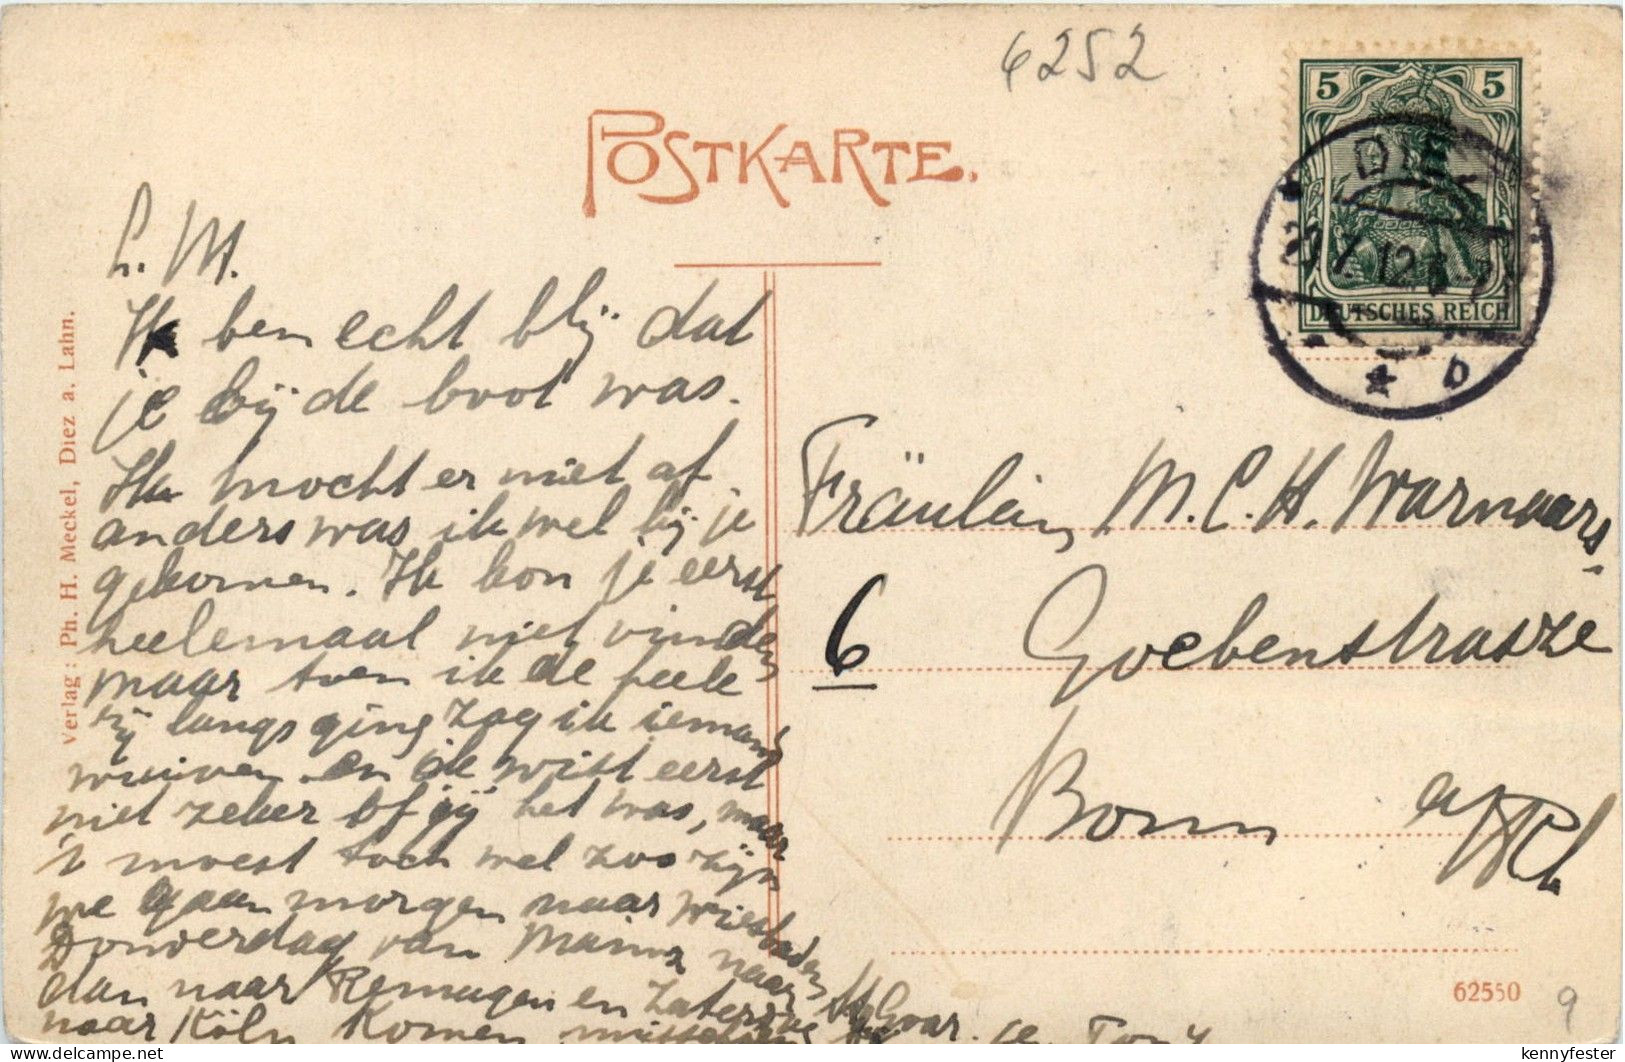 6252
POSTKARTE.
5 5
DEUTSCHES REICH
DIEZ
7.12.6-7
* b
verlag: Ph. H. Meckel, Diez a. Lahn.
L. M.
Ik ben echt blij dat
je bij de boot was.
Ik mocht er niet af
anders was ik wel bij je
gekomen. Ik kon je eerst
heelemaal niet vinden
maar toen ik de heele
rij langs ging zag ik iemand
wuiven en ik wist eerst
niet zeker of jij het was, maar
't moest toch wel zoo zijn
we gaan morgen naar Wiesbaden
Donderdag van Mainz naar
dan naar Remagen en Zaterdag
naar Köln komen
Fräulein M. C. H. Warnaars
6 Goebenstrasze
Bonn a/Rh
62550
9
kennyfester